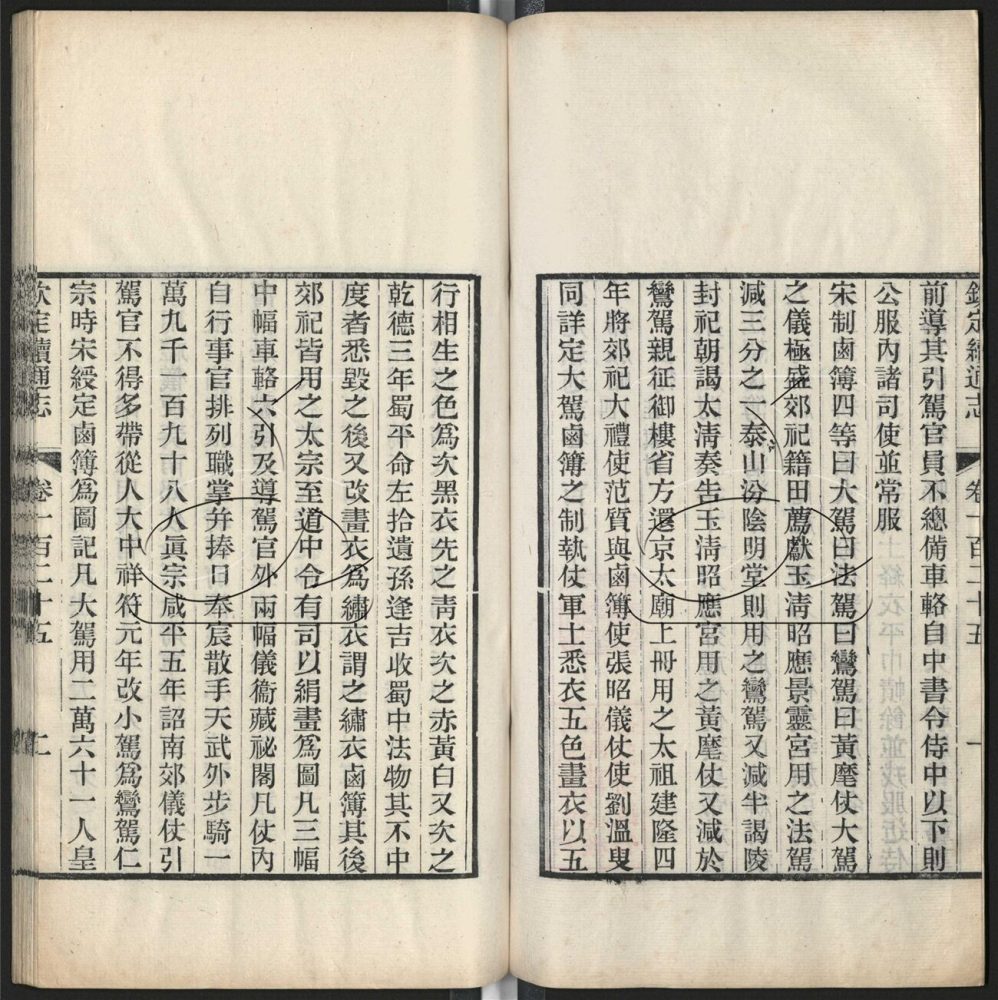 欽定續通志 卷一百二十五 一
前導其引駕官員不總備車輅自中書令侍中以下則
公服內諸司使並常服
宋制鹵簿四等曰大駕曰法駕曰鸞駕曰黃麾仗大駕
之儀極盛郊祀籍田薦獻玉清昭應景靈宮用之法駕
減三分之一泰山汾陰明堂則用之鸞駕又減半謁陵
封祀朝謁太清奏告玉清昭應宮用之黃麾仗又減於
鸞駕親征御樓省方還京太廟上冊用之太祖建隆四
年將郊祀大禮使范質與鹵簿使張昭儀仗使劉溫叟
同詳定大駕鹵簿之制執仗軍士悉衣五色畫衣以五
行相生之色爲次黑衣先之靑衣次之赤黃白又次之
乾德三年蜀平命左拾遺孫逢吉收蜀中法物其不中
度者悉毀之後又改畫衣爲繡衣謂之繡衣鹵簿其後
郊祀皆用之太宗至道中令有司以絹畫爲圖凡三幅
中幅車輅六引及導駕官外兩幅儀衞藏祕閣凡仗內
自行事官排列職掌并捧日奉宸散手天武外步騎一
萬九千一百九十八人眞宗咸平五年詔南郊儀仗引
駕官不得多帶從人大中祥符元年改小駕爲鸞駕仁
宗時宋綬定鹵簿爲圖記凡大駕用二萬六十一人皇
欽定續通志 卷一百二十五